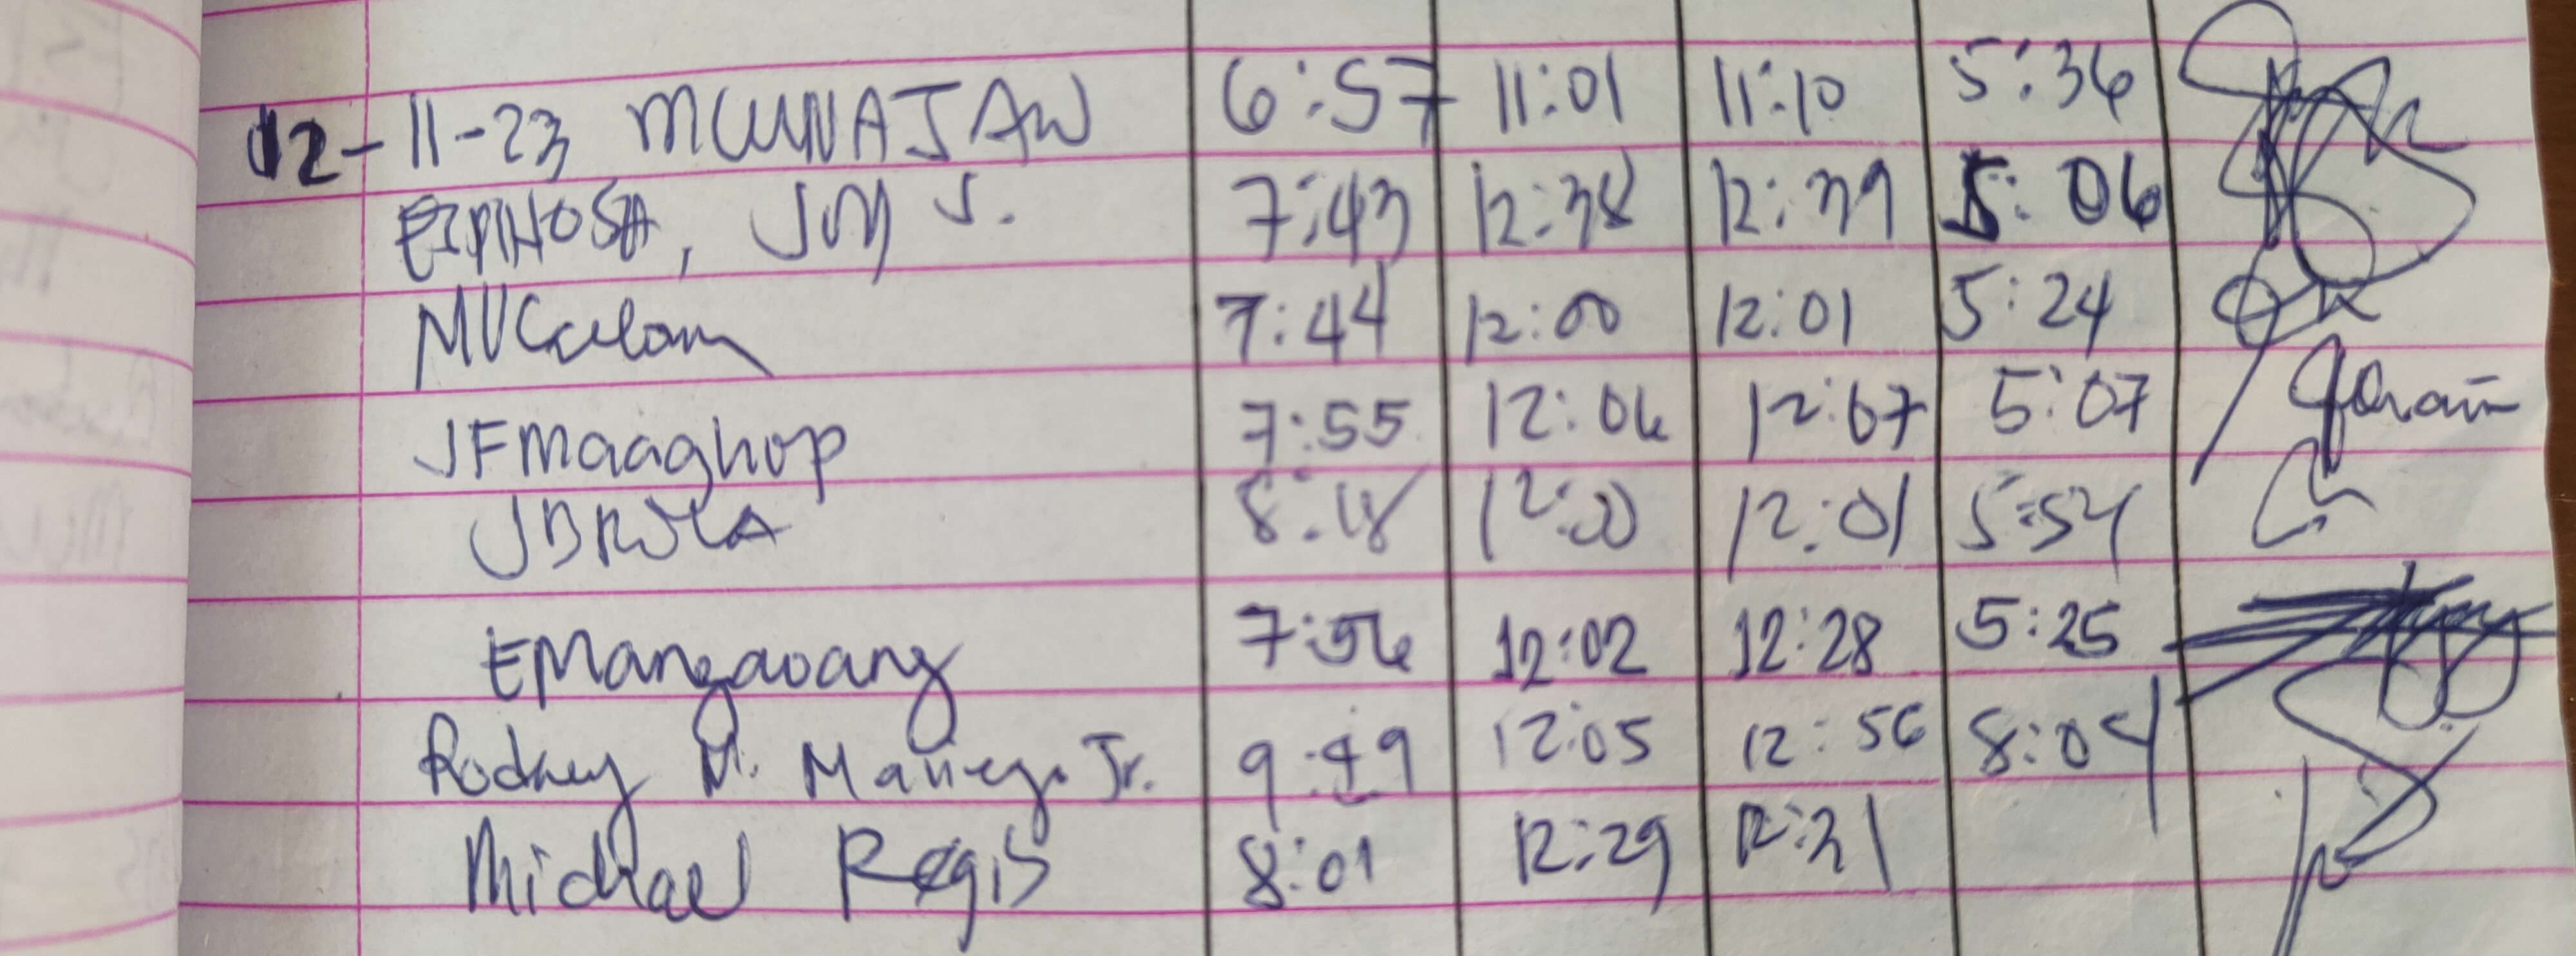 12-11-23 MCUNAJAN 6:57 11:01 11:10 5:36
ESPINOSA, JOY S. 7:43 12:38 12:39 5:06
7:44 12:00 12:01 5:24
JFMaaghop 7:55 12:06 12:07 5:07
8:18 12:00 12:01 5:54
EMangaoang 7:56 12:02 12:28 5:25
Rodney M. Jr. 9:49 12:05 12:56 8:04
Michael Regis 8:01 12:29 12:31